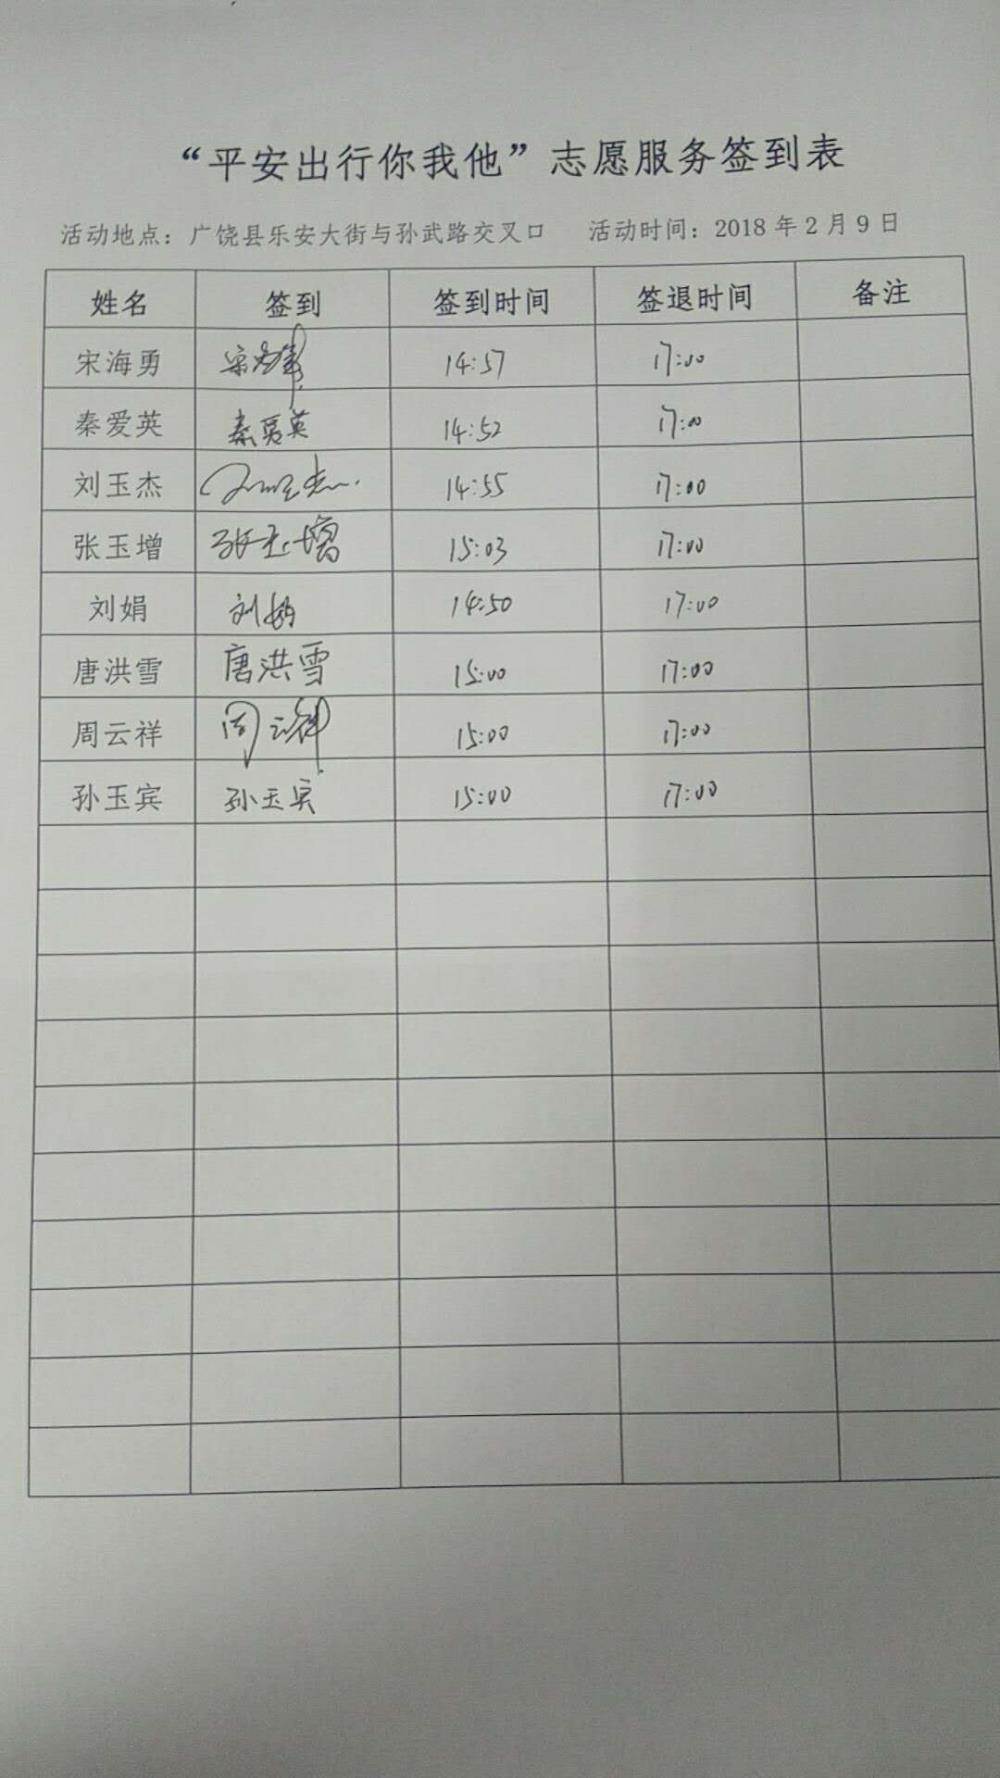 “平安出行你我他”志愿服务签到表
活动地点：广饶县乐安大街与孙武路交叉口 活动时间：2018年2月9日
姓名 签到 签到时间 签退时间 备注
宋海勇 14:57 17:00
秦爱英 秦爱英 14:52 17:00
刘玉杰 刘玉杰 14:55 17:00
张玉增 张玉增 15:03 17:00
刘娟 刘娟 14:50 17:00
唐洪雪 唐洪雪 15:00 17:00
周云祥 周云祥 15:00 17:00
孙玉宾 孙玉宾 15:00 17:00